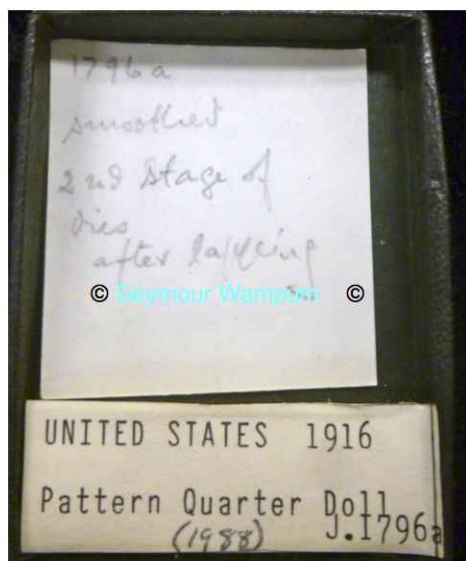 1796a
smoothed
2nd stage of
dies
after lapping
© Seymour Wampum ©
UNITED STATES 1916
Pattern Quarter Doll
J.1796a
(1988)